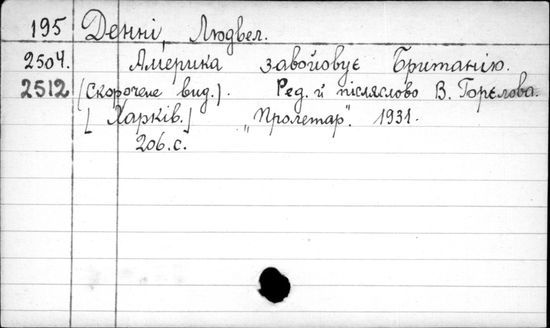 195 Денні, Людвел.
2504. Америка завойовує Британію.
2512 (Скорочене вид.). Ред. й післяслово В. Горєлова.
[Харків.] „Пролетар". 1931.
206.с.